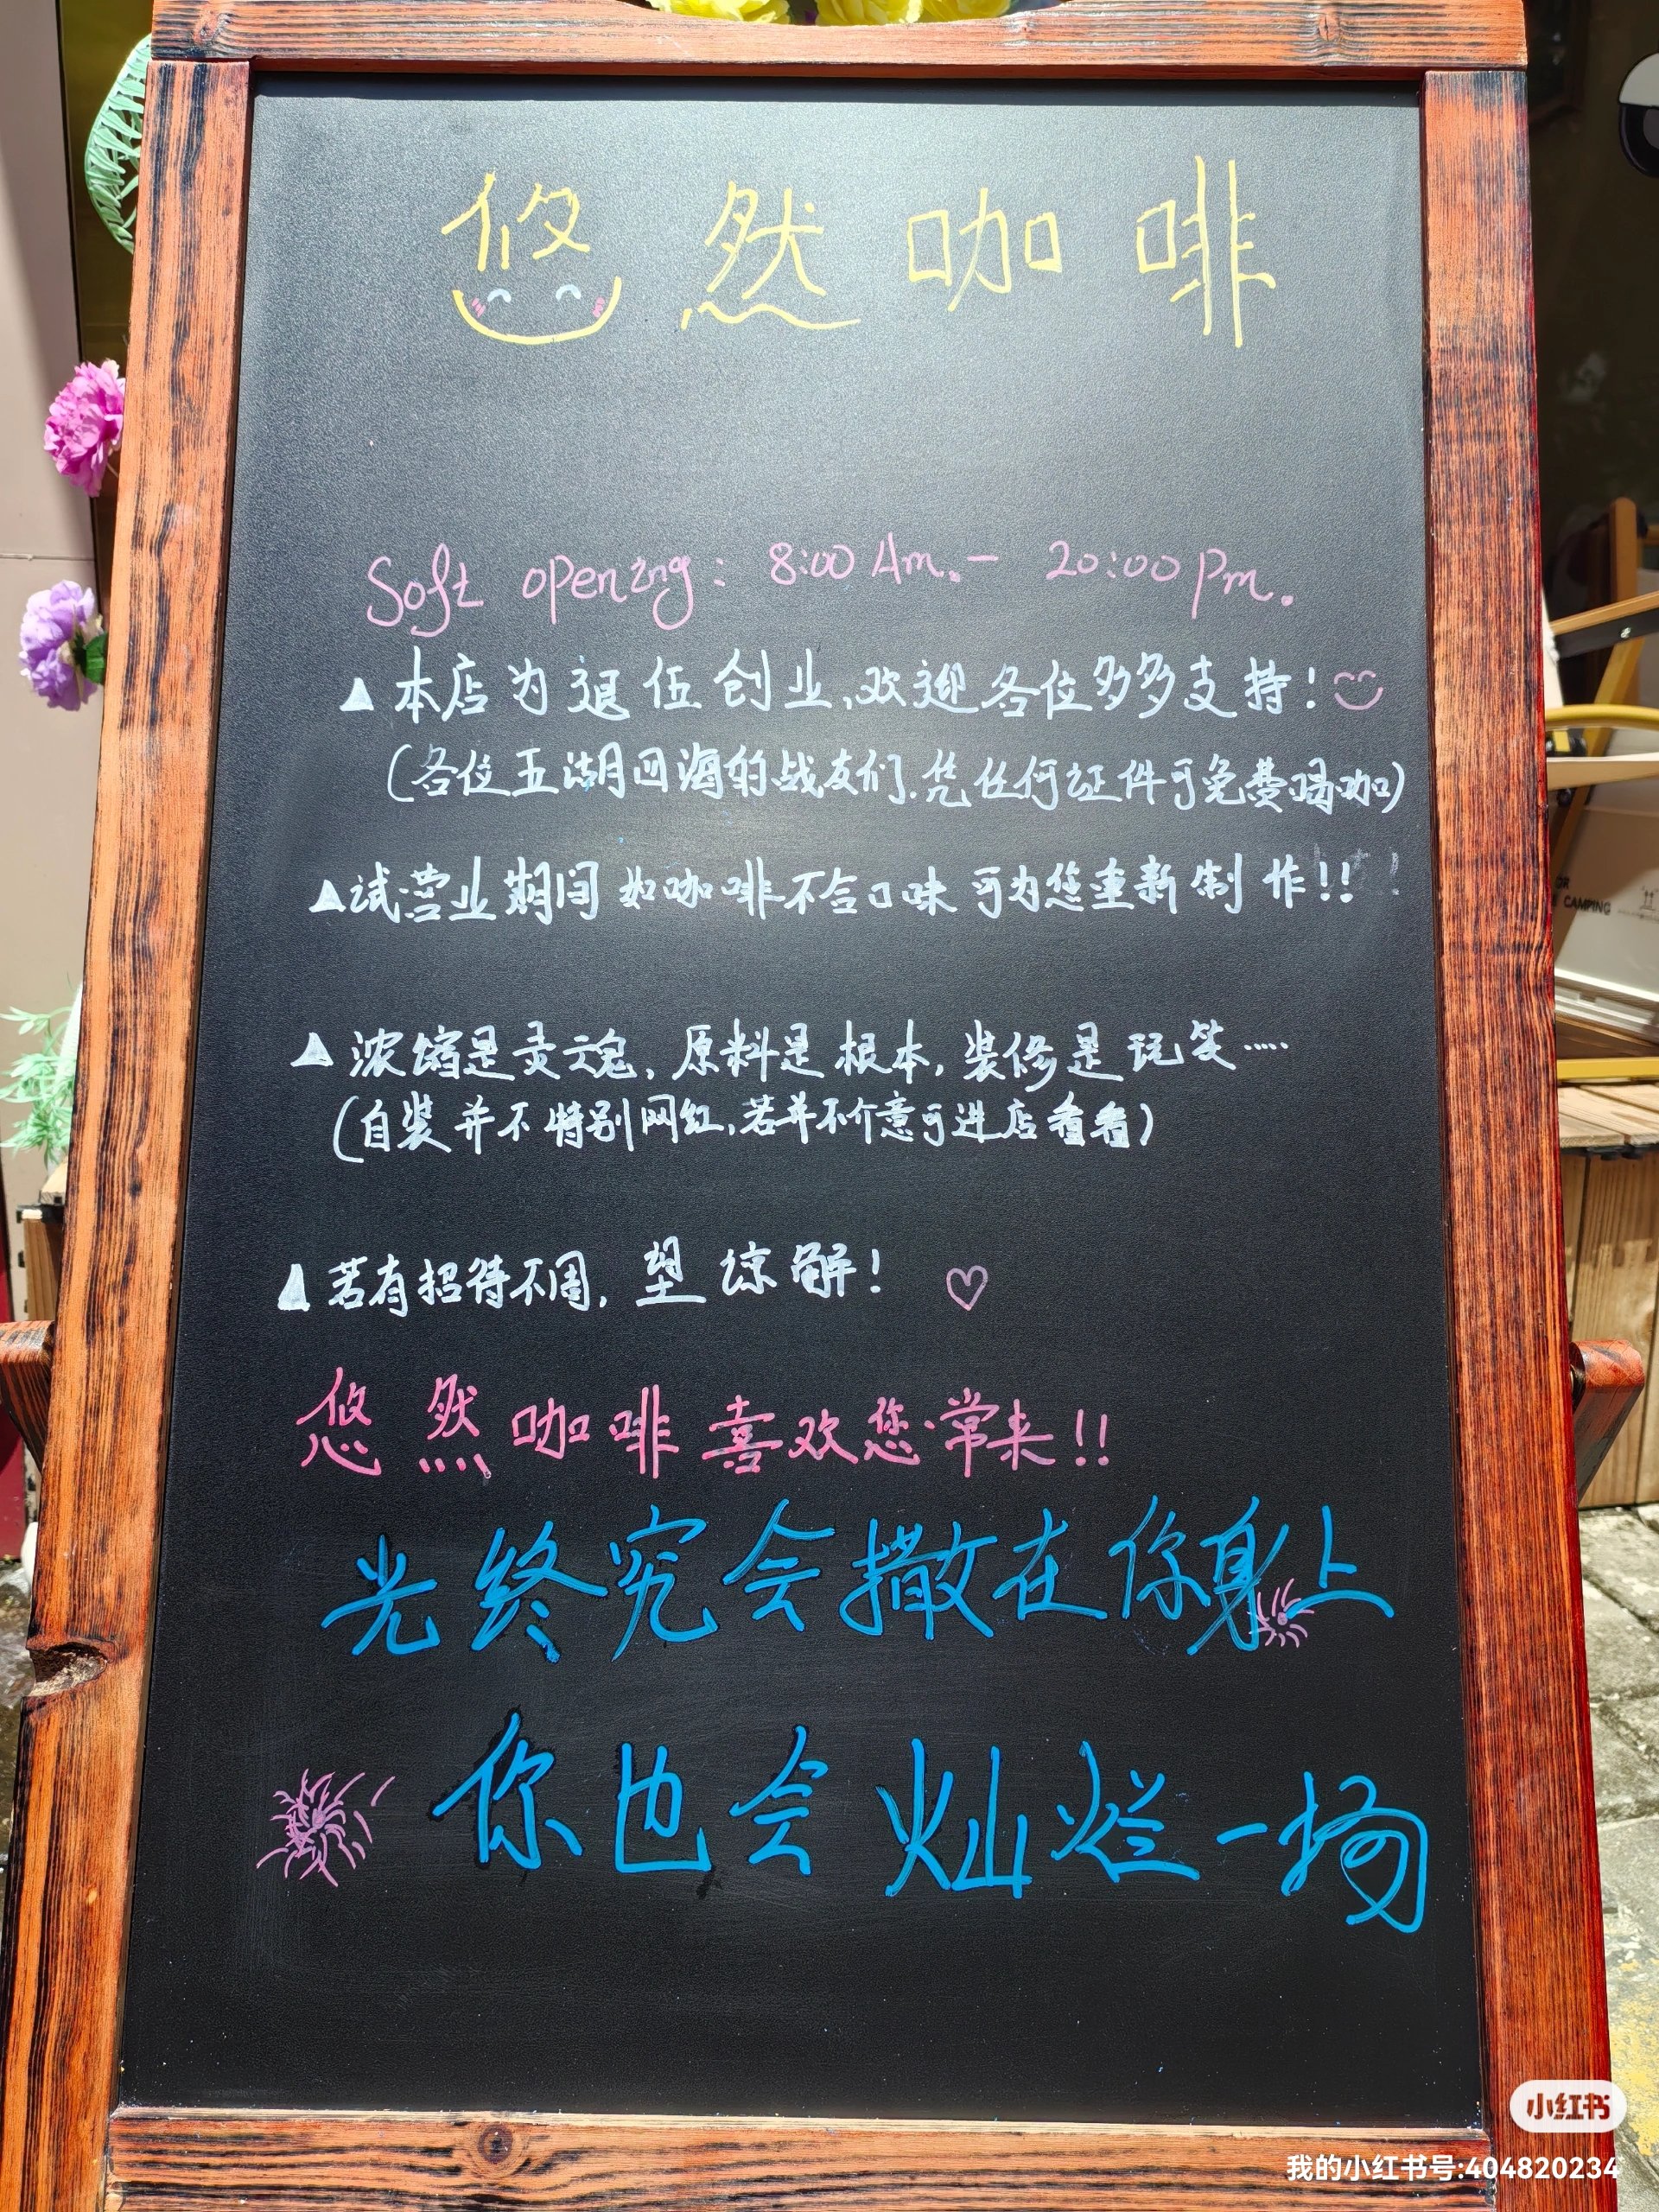 悠然咖啡
Soft opening: 8:00 Am.- 20:00 pm.
▲本店为退伍创业,欢迎各位多多支持!
(各位五湖四海的战友们.凭任何证件可免费喝咖)
▲试营业期间如咖啡不合口味可为您重新制作!!
▲浓缩是灵魂,原料是根本,装修是玩笑……
(自装并不特别网红,若并不介意可进店看看)
▲若有招待不周,望谅解!
悠然咖啡喜欢您常来!!
光终究会撒在你身上
你也会灿烂一场
OR
E CAMPING
小红书
我的小红书号:404820234